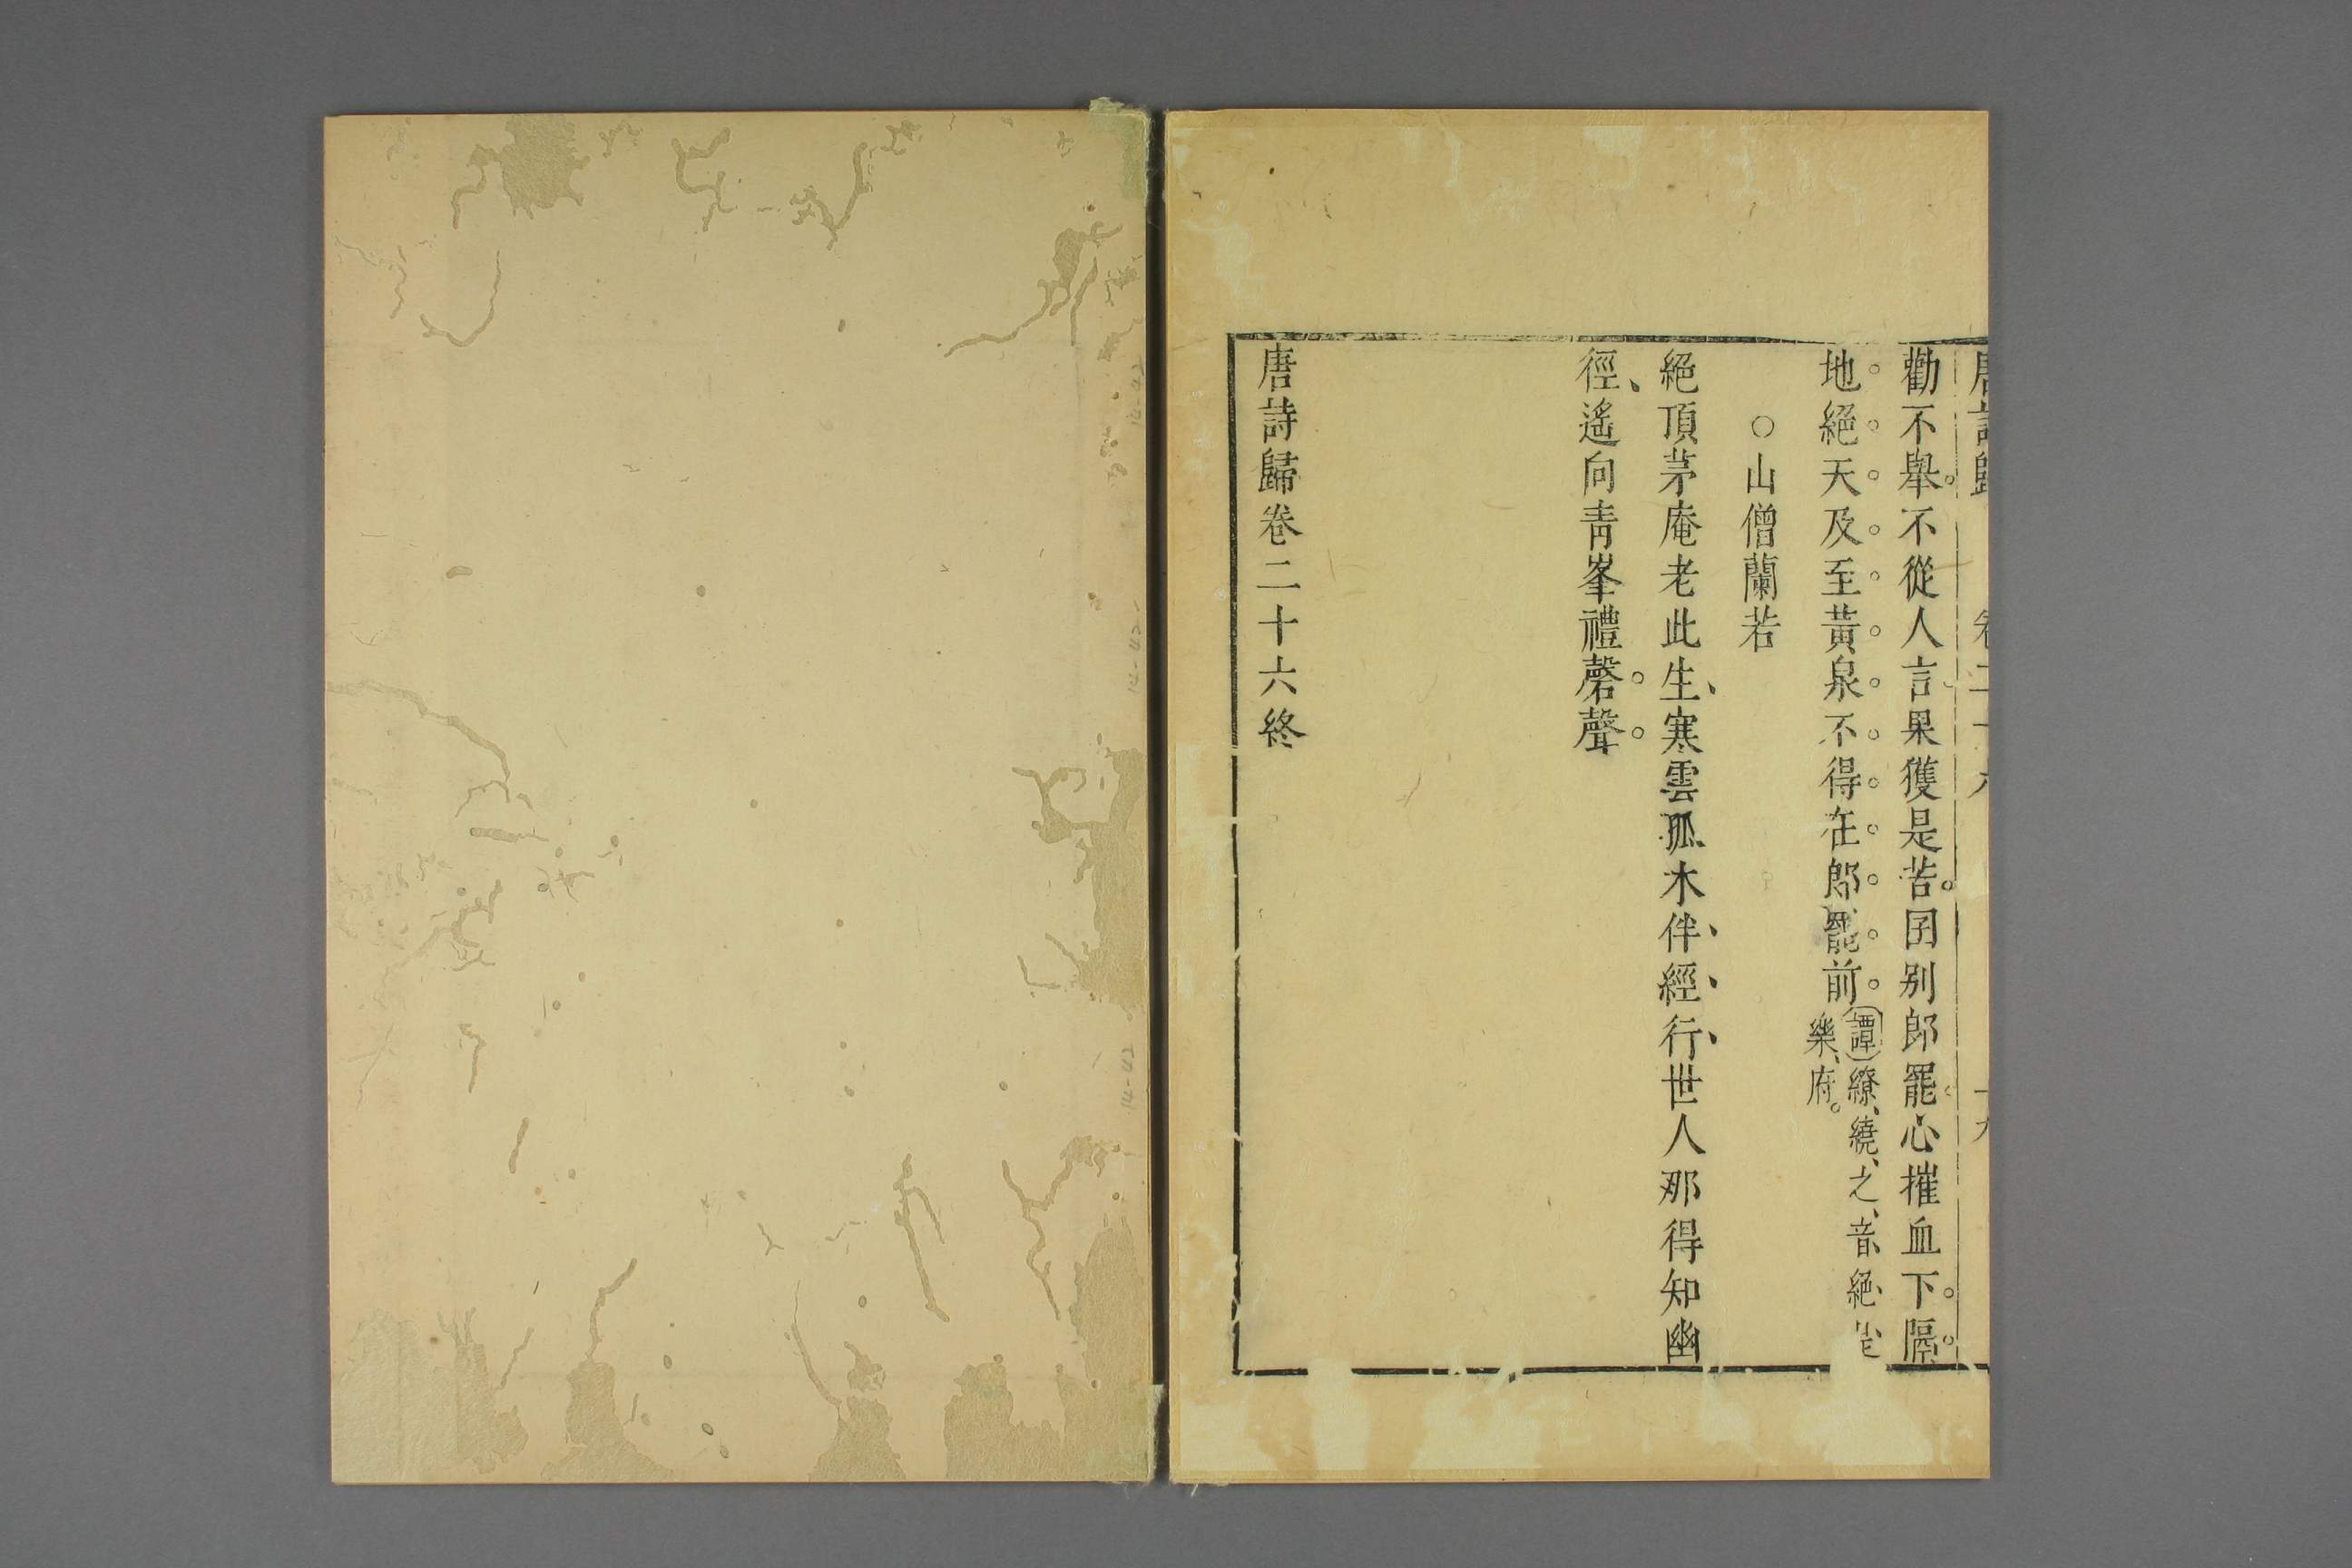 唐詩歸 卷二十六 十九
勸不舉不從人言果獲是苦囝别郎罷心摧血下隔
地絕天及至黃泉不得在郎罷前譚繚繞之音絕是
樂府
○山僧蘭若
絕頂茅庵老此生寒雲孤木伴經行世人那得知幽
徑遙向青峯禮磬聲
唐詩歸卷二十六終